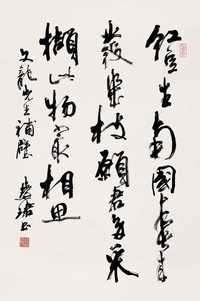 红豆生南国春来
发几枝愿君多采
撷此物最相思
文龙先生补壁